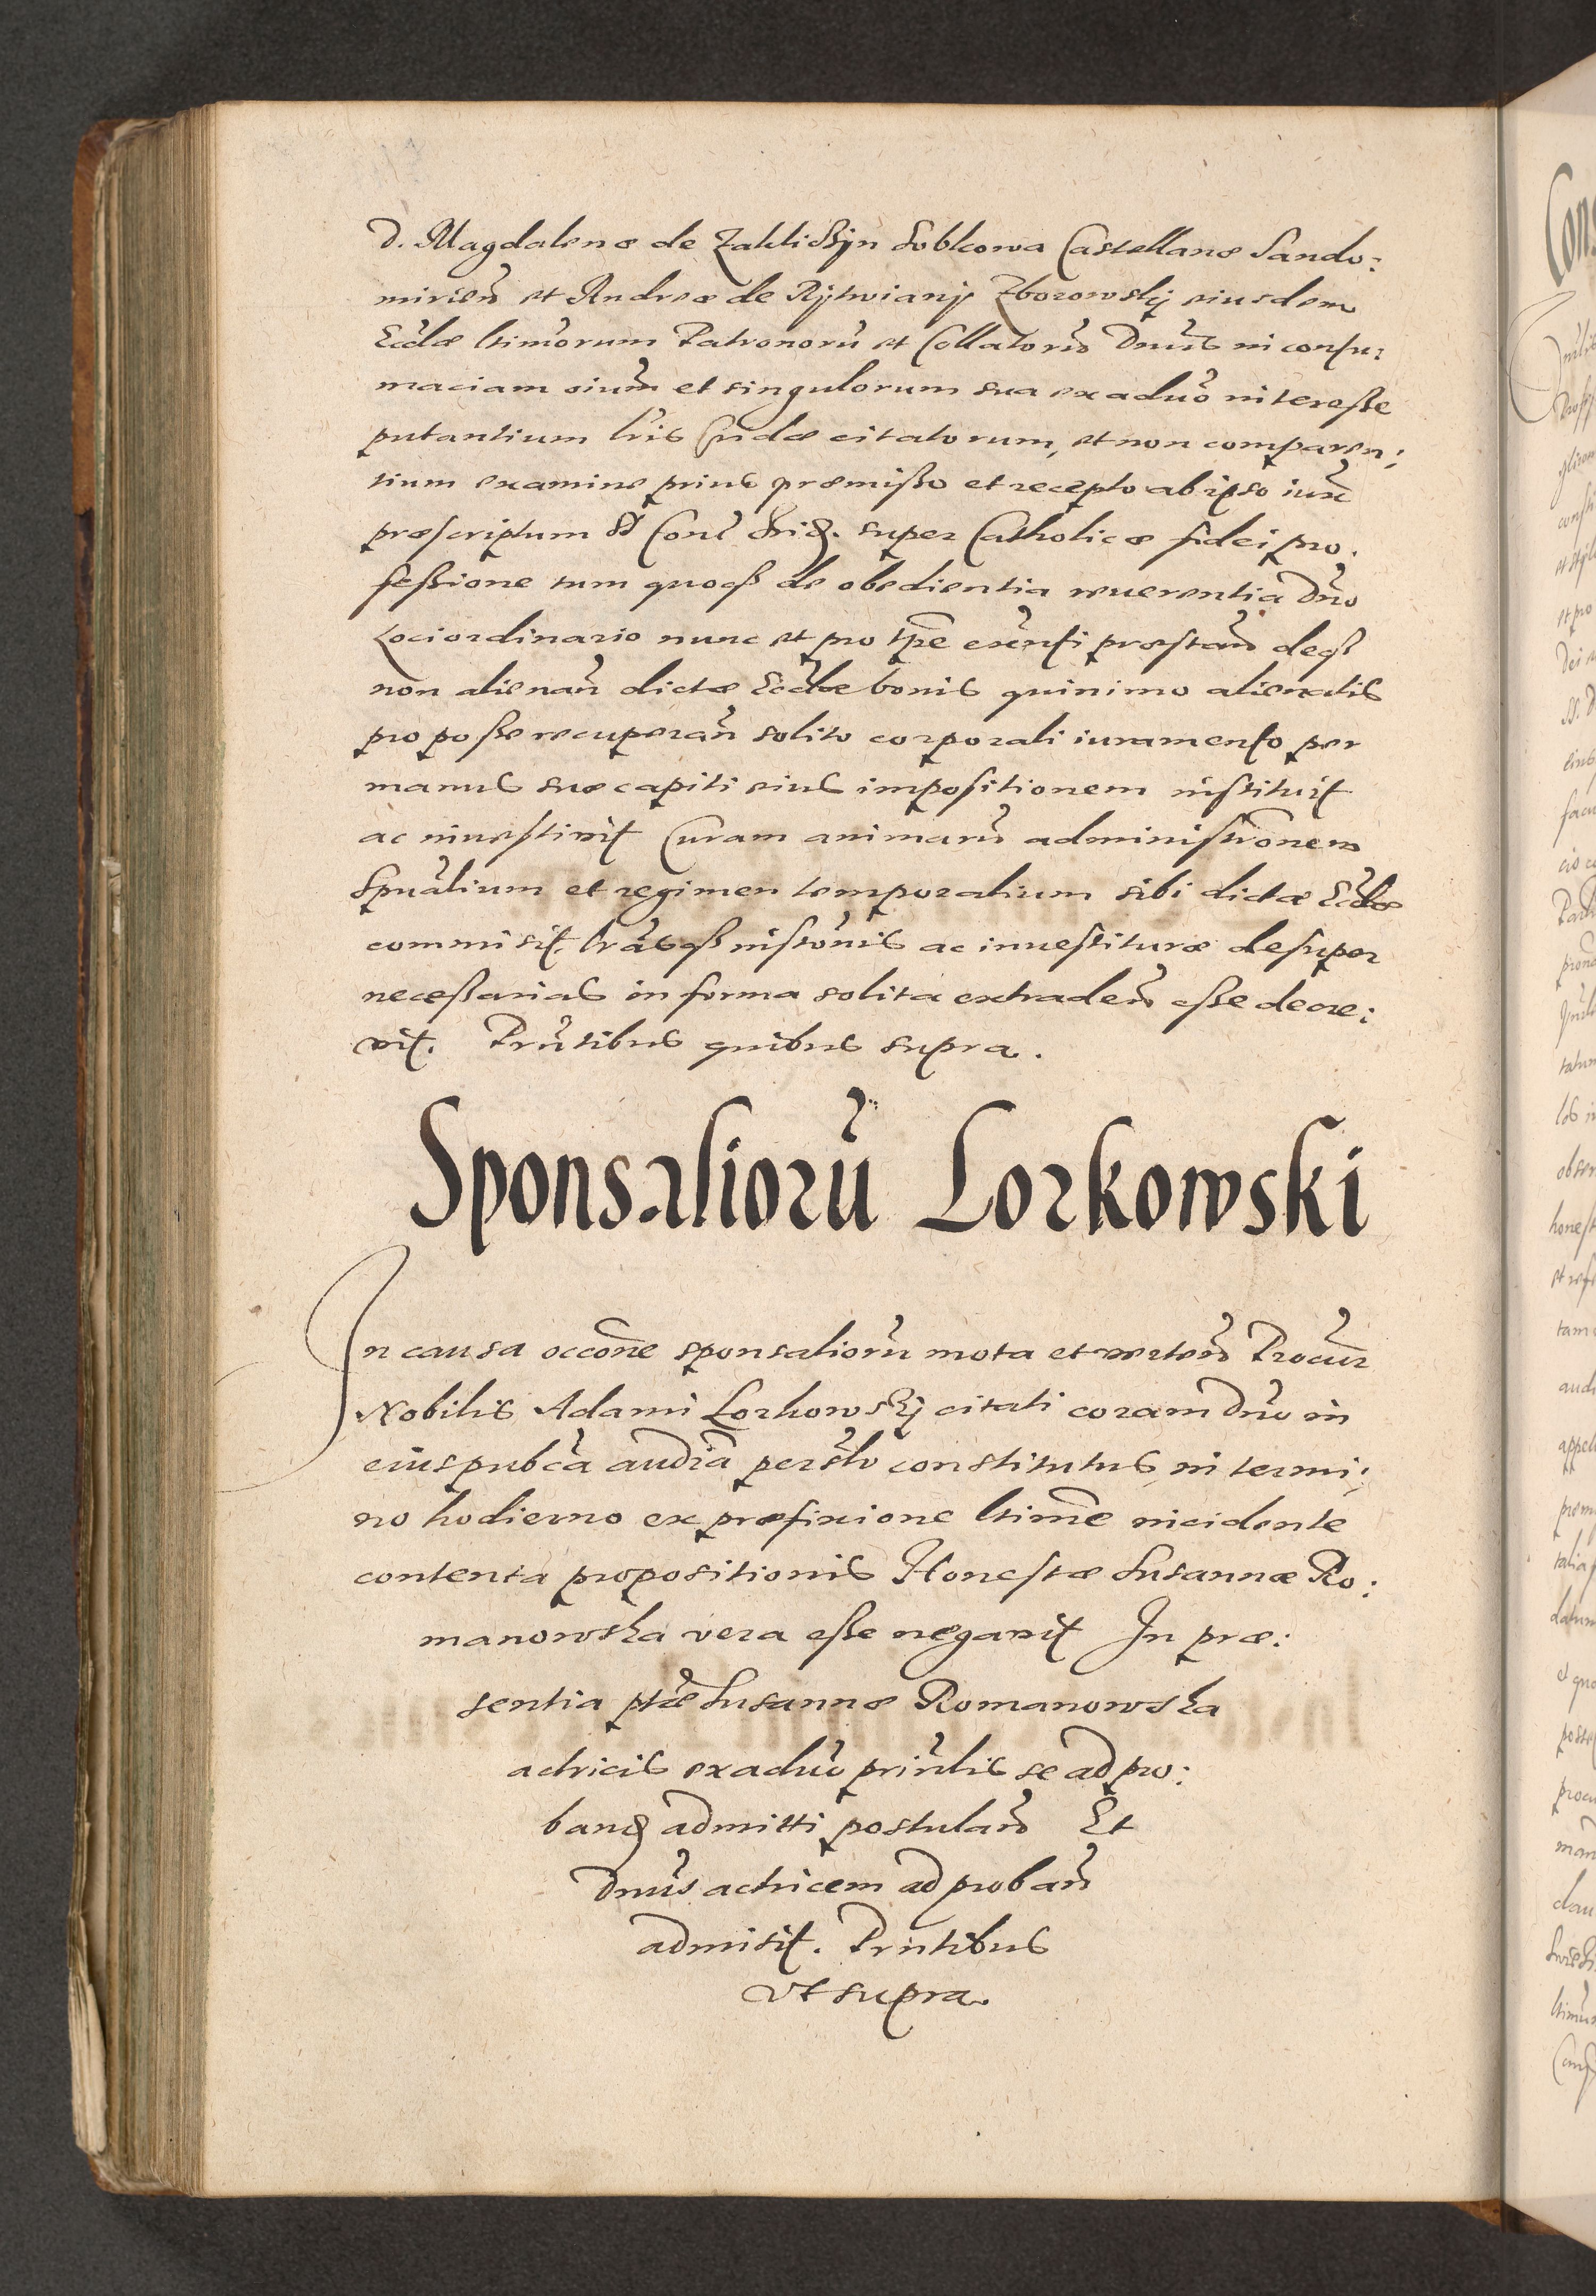 D. Magdalenæ de Zaklicżyn Sobkowa Castellanæ Sando:
mirien̄ et Andreæ de Rÿtwianÿ Zborowskÿ eiusdem
Ecclæ ltimorum Patronorū et Collatorū Dnūs in contu:
maciam oiūm et singulorum sua ex aduō interesse
putantium lrīs Cridæ citatorum, et non comparen:
tium examine prius præmisso et recepto ab ipso iux̄
præscriptum Conc Trid. super Catholicæ fidei pro.
fessione tum quoqȝ de obedientia reuerentia Dnō
Loci ordinario nunc et pro tp̄e exn̄ti præstan̄ deqȝ
non alienan̄ dictæ Ecclæ bonis quinimo alienatis
pro posse recuperan̄ solito corporali iuramento per
manus suæ capiti eius impositionem instituit
ac inuestiuit Curam animarū administrōnem
Spuālium et regimen temporalium sibi dictæ Ecclæ
commisit. lrāsqȝ instōnis ac inuestituræ desuper
necessarias in forma solita extraden̄ esse decre:
vit. Prn̄tibus quibus supra.
Sponsaliorū Lorkowski
In causa occōne sponsaliorū mota et verten̄ Procur̄
Nobilis Adami Lorkowskÿ citati coram Dnō in
eius pubcā audiā persōlr constitutus in termi:
no hodierno ex præfixione ltimē incidente
contenta propositionis Honestæ Susannæ Ro:
manowska vera esse negauit In præ:
sentia ptæ Susannæ Romanowska
actricis ex aduō prin̄lis se ad pro:
band admitti postulan̄ Et
Dnūs actricem ad proban̄
admisit. Prn̄tibus
vt supra.